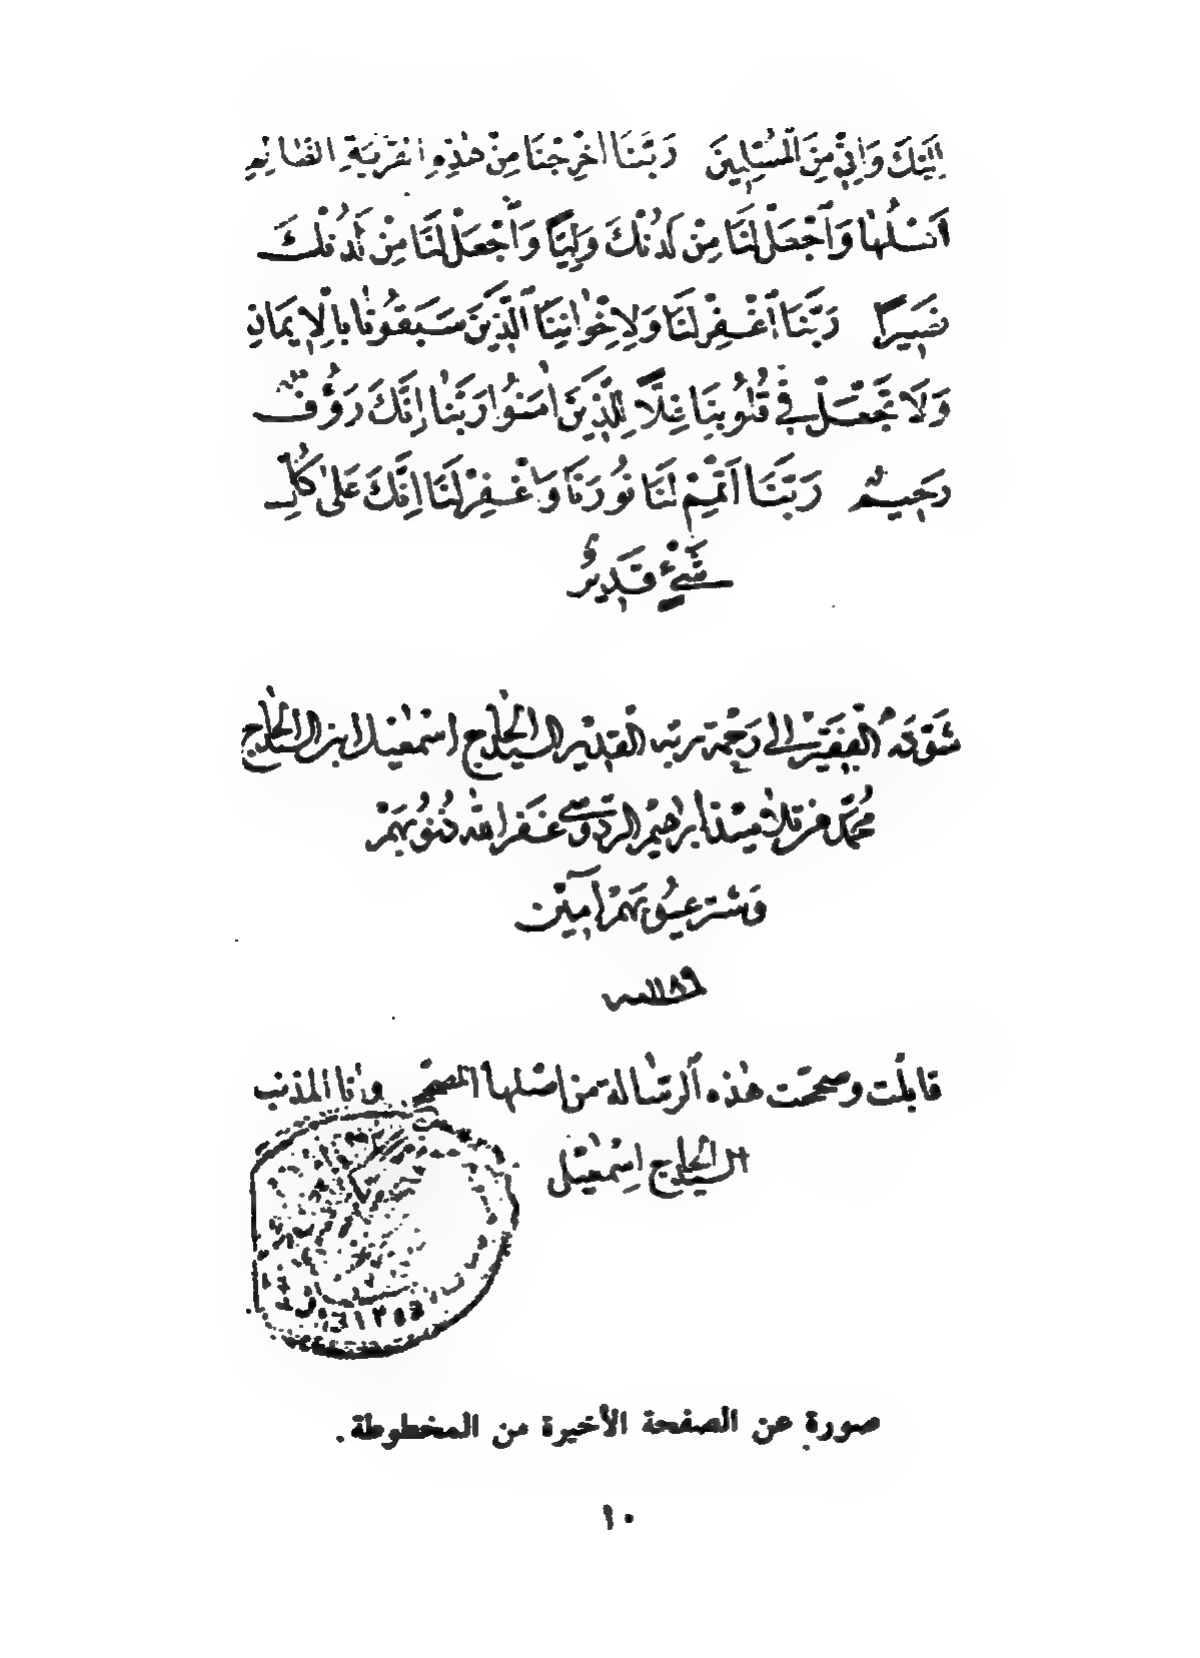 اِلَيْكَ وَاِنِّي مِنَ الْمُسْلِمِينَ رَبَّنَا اَخْرِجْنَا مِنْ هٰذِهِ الْقَرْيَةِ الظَّالِمِ
اَهْلُهَا وَاجْعَلْ لَنَا مِنْ لَدُنْكَ وَلِيًّا وَاجْعَلْ لَنَا مِنْ لَدُنْكَ
نَصِيرًا رَبَّنَا اغْفِرْ لَنَا وَلِاِخْوَانِنَا الَّذِينَ سَبَقُونَا بِالْاِيمَانِ
وَلَا تَجْعَلْ فِي قُلُوبِنَا غِلًّا لِلَّذِينَ اٰمَنُوا رَبَّنَا اِنَّكَ رَؤُفٌ
رَحِيمٌ رَبَّنَا اَتْمِمْ لَنَا نُورَنَا وَاغْفِرْ لَنَا اِنَّكَ عَلٰى كُلِّ
شَيْءٍ قَدِيرٌ
سَوَّدَهُ الْفَقِيرُ اِلٰى رَحْمَةِ رَبِّهِ الْقَدِيرِ السيد الحاج اسمعيل ابن السيد الحاج
محمد ابراهيم غفر الله ذنوبهم
وستر عيوبهم آمين
سنه ١١٨٦
قابلت وصححت هذه الرسالة من اصلها المصحح وانا المذنب
السيد الحاج اسمعيل
صورة عن الصفحة الأخيرة من المخطوطة.
١٠